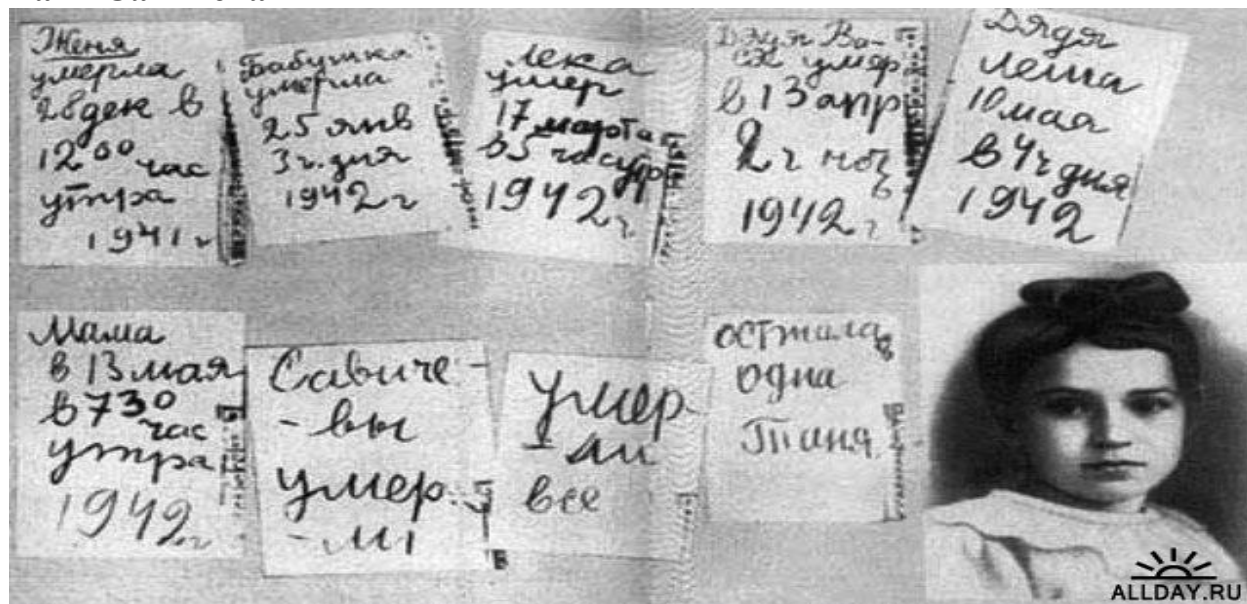 Женя
умерла
28 дек в
12 00 час
утра
1941 г
Бабушка
умерла
25 янв
3 ч. дня
1942 г
Лека
умер
17 марта
в 5 час утр
1942 г
Дядя Ва-
ся умер
в 13 апр
2 ч ноч
1942 г
Дядя
Леша
10 мая
в 4 ч дня
1942
Мама
в 13 мая
в 7 30
час
утра
1942 г
Савиче-
-вы
умер
-ли
Умер-
-ли
все
осталась
одна
Таня
ALLDAY.RU